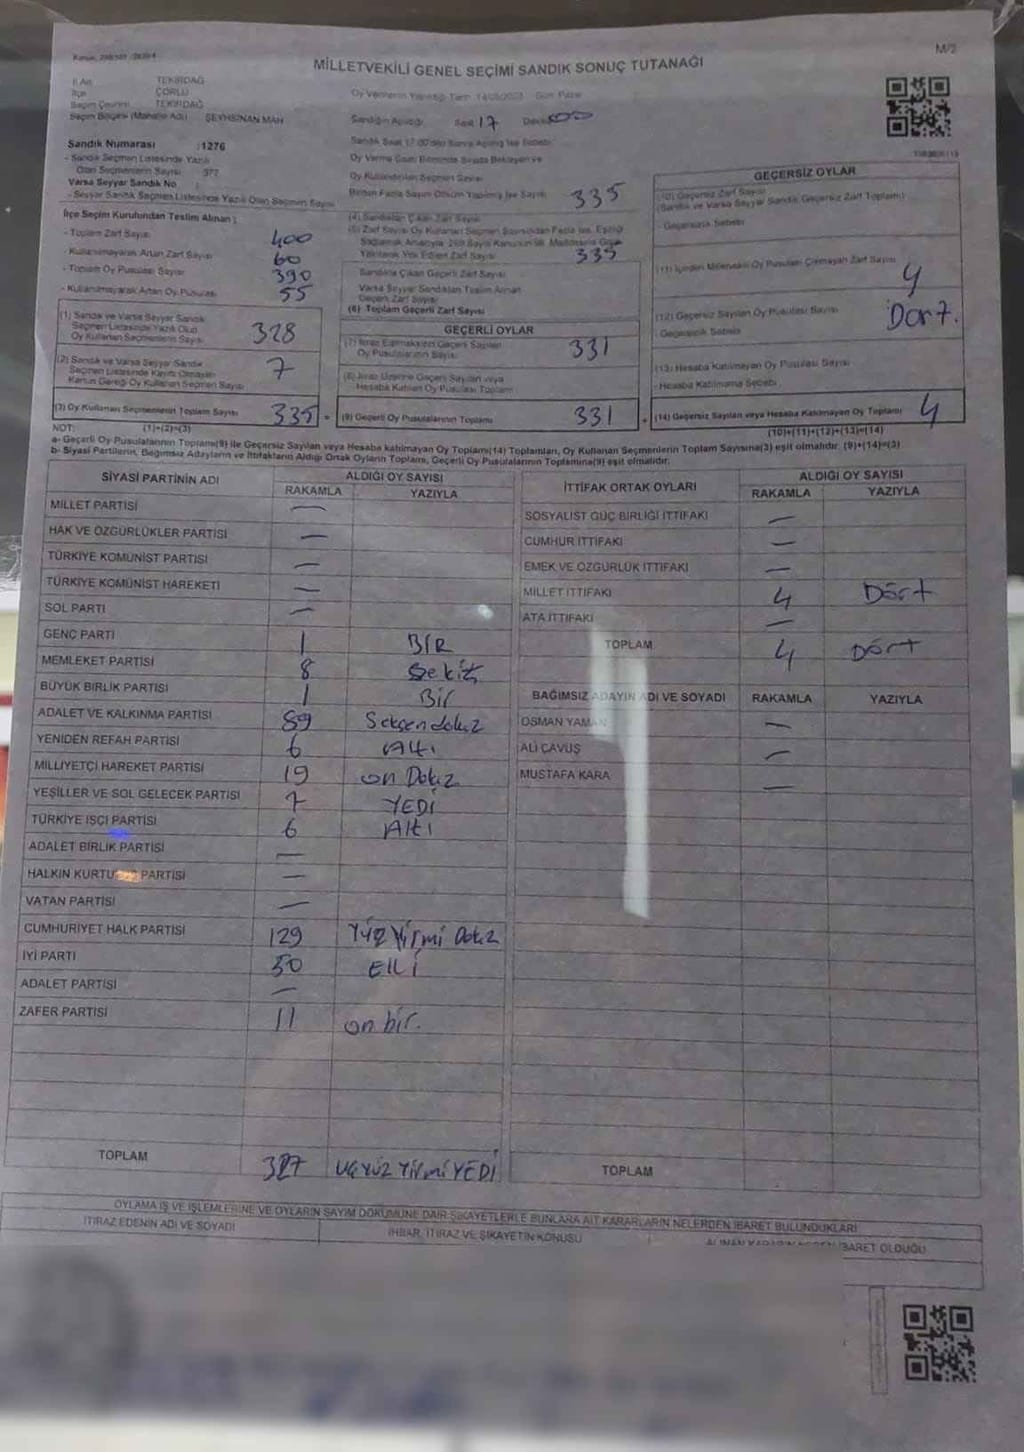 M/2
MİLLETVEKİLİ GENEL SEÇİMİ SANDIK SONUÇ TUTANAĞI
İl Adı TEKİRDAĞ
İlçe ÇORLU
Seçim Çevresi TEKİRDAĞ
Seçim Bölgesi (Mahalle Adı) ŞEYHSİNAN MAH
Oy Vermenin Yapıldığı Tarih 14/05/2023 Gün Pazar
Sandığın Açıldığı Saat 17 Dakika 00
Sandık Numarası :1276
- Sandık Seçmen Listesinde Yazılı
Olan Seçmenlerin Sayısı 377
Varsa Seyyar Sandık No :
- Seyyar Sandık Seçmen Listesinde Yazılı Olan Seçmen Sayısı
Sandık Saat 17.00'den Sonra Açılmış İse Sebebi
Oy Verme Saati Bitiminde Sırada Bekleyen ve
Oy Kullandırılan Seçmen Sayısı
Birden Fazla Sayım Döküm Yapılmış İse Sayısı
İlçe Seçim Kurulundan Teslim Alınan ;
- Toplam Zarf Sayısı 400
- Kullanılmayarak Artan Zarf Sayısı 60
- Toplam Oy Pusulası Sayısı 390
- Kullanılmayarak Artan Oy Pusulası 55
(1) Sandık ve Varsa Seyyar Sandık
Seçmen Listesinde Yazılı Olup
Oy Kullanan Seçmenlerin Sayısı 328
(2) Sandık ve Varsa Seyyar Sandık
Seçmen Listesinde Kayıtlı Olmayıp
Kanun Gereği Oy Kullanan Seçmen Sayısı 7
(3) Oy Kullanan Seçmenlerin Toplam Sayısı 335 =
(4) Sandıktan Çıkan Zarf Sayısı 335
(5) Zarf Sayısı Oy Kullanan Seçmen Sayısından Fazla İse, Eşitliği
Sağlamak Amacıyla, 298 Sayılı Kanunun 98. Maddesine Göre
Yakılarak Yok Edilen Zarf Sayısı 335
Sandıkta Çıkan Geçerli Zarf Sayısı
Varsa Seyyar Sandıktan Teslim Alınan
Geçerli Zarf Sayısı
(6) Toplam Geçerli Zarf Sayısı
GEÇERLİ OYLAR
(7) İtiraz Edilmeksizin Geçerli Sayılan
Oy Pusulalarının Sayısı 331
(8) İtiraz Üzerine Geçerli Sayılan veya
Hesaba Katılan Oy Pusulası Toplamı
(9) Geçerli Oy Pusulalarının Toplamı 331 +
GEÇERSİZ OYLAR
(10) Geçersiz Zarf Sayısı
(Sandık ve Varsa Seyyar Sandık Geçersiz Zarf Toplamı)
- Geçersizlik Sebebi
(11) İçinden Milletvekili Oy Pusulası Çıkmayan Zarf Sayısı
4
(12) Geçersiz Sayılan Oy Pusulası Sayısı Dört.
- Geçersizlik Sebebi
(13) Hesaba Katılmayan Oy Pusulası Sayısı
- Hesaba Katılmama Sebebi
(14) Geçersiz Sayılan veya Hesaba Katılmayan Oy Toplamı 4
NOT: (1)+(2)=(3) (10)+(11)+(12)+(13)=(14)
a- Geçerli Oy Pusulalarının Toplamı(9) ile Geçersiz Sayılan veya Hesaba katılmayan Oy Toplamı(14) Toplamları, Oy Kullanan Seçmenlerin Toplam Sayısına(3) eşit olmalıdır. (9)+(14)=(3)
b- Siyasi Partilerin, Bağımsız Adayların ve İttifakların Aldığı Ortak Oyların Toplamı, Geçerli Oy Pusulalarının Toplamına(9) eşit olmalıdır.
SİYASİ PARTİNİN ADI ALDIĞI OY SAYISI
RAKAMLA YAZIYLA
MİLLET PARTİSİ —
HAK VE ÖZGÜRLÜKLER PARTİSİ —
TÜRKİYE KOMÜNİST PARTİSİ —
TÜRKİYE KOMÜNİST HAREKETİ —
SOL PARTİ —
GENÇ PARTİ 1 BİR
MEMLEKET PARTİSİ 8 Sekiz
BÜYÜK BİRLİK PARTİSİ 1 Bir
ADALET VE KALKINMA PARTİSİ 89 Seksen dokuz
YENİDEN REFAH PARTİSİ 6 Altı
MİLLİYETÇİ HAREKET PARTİSİ 19 on Dokuz
YEŞİLLER VE SOL GELECEK PARTİSİ 7 YEDİ
TÜRKİYE İŞÇİ PARTİSİ 6 Altı
ADALET BİRLİK PARTİSİ —
HALKIN KURTULUŞ PARTİSİ —
VATAN PARTİSİ —
CUMHURİYET HALK PARTİSİ 129 Yüz Yirmi Dokuz
İYİ PARTİ 50 Elli
ADALET PARTİSİ —
ZAFER PARTİSİ 11 on bir.
TOPLAM 327 üçyüz YirmiYEDİ
İTTİFAK ORTAK OYLARI ALDIĞI OY SAYISI
RAKAMLA YAZIYLA
SOSYALİST GÜÇ BİRLİĞİ İTTİFAKI —
CUMHUR İTTİFAKI —
EMEK VE ÖZGÜRLÜK İTTİFAKI —
MİLLET İTTİFAKI 4 Dört
ATA İTTİFAKI —
TOPLAM 4 Dört
BAĞIMSIZ ADAYIN ADI VE SOYADI RAKAMLA YAZIYLA
OSMAN YAMAN —
ALİ ÇAVUŞ —
MUSTAFA KARA —
TOPLAM
OYLAMA İŞ VE İŞLEMLERİNE VE OYLARIN SAYIM DÖKÜMÜNE DAİR ŞİKAYETLERLE BUNLARA AİT KARARLARIN NELERDEN İBARET BULUNDUKLARI
İTİRAZ EDENİN ADI VE SOYADI İHBAR, İTİRAZ VE ŞİKAYETİN KONUSU İBARET OLDUĞU